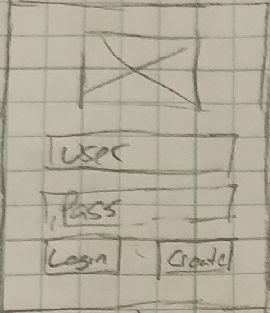 User
Pass
Login Create